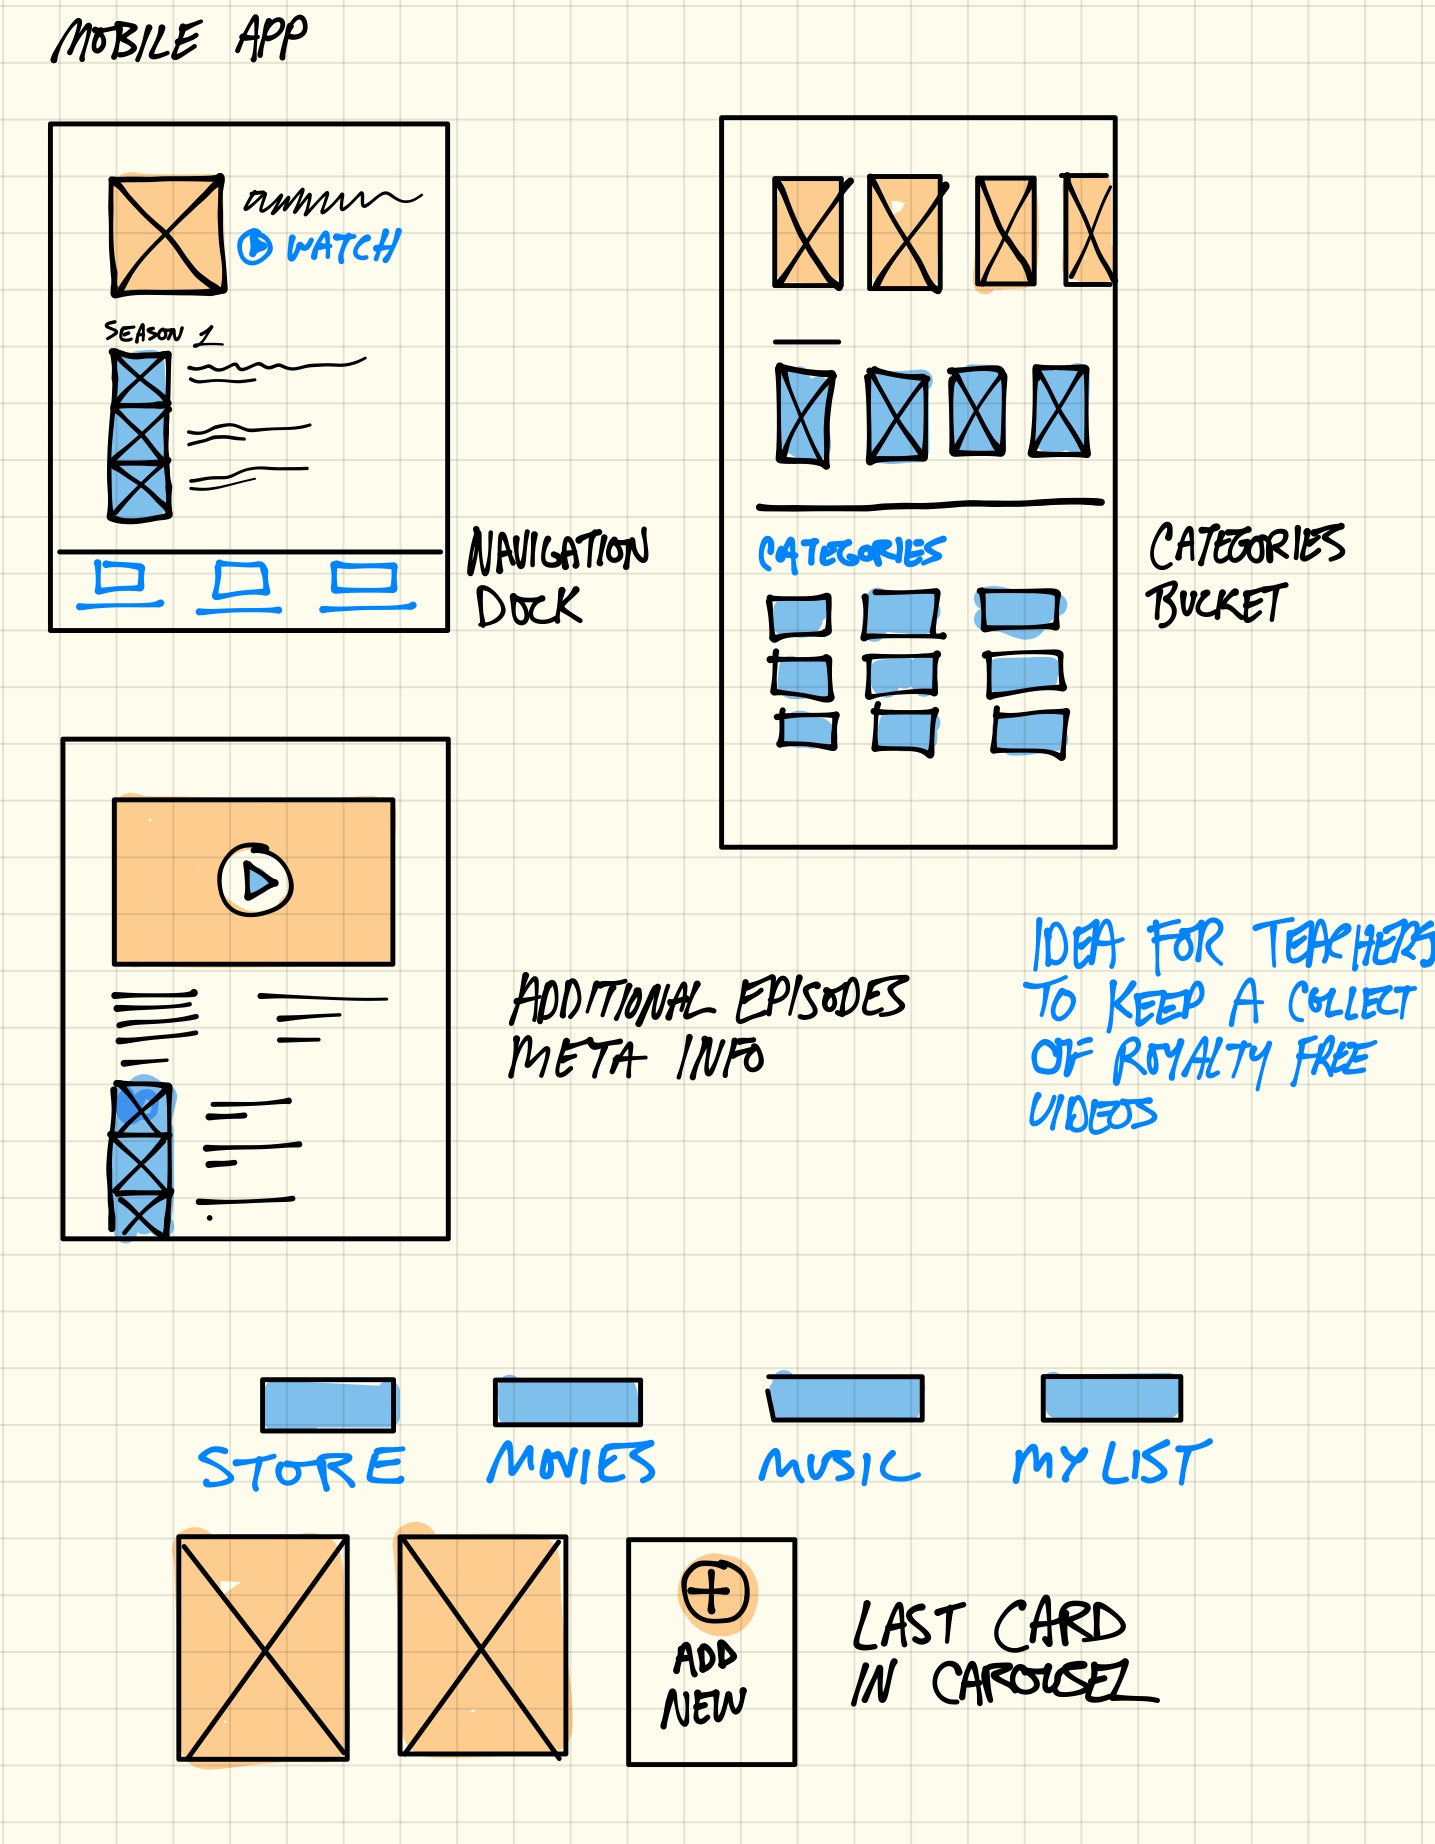 MOBILE APP
WATCH
SEASON 1
NAVIGATION
DOCK
CATEGORIES
CATEGORIES
BUCKET
ADDITIONAL EPISODES
META INFO
IDEA FOR TEACHERS
TO KEEP A COLLECT
OF ROYALTY FREE
VIDEOS
STORE
MOVIES
MUSIC
MY LIST
ADD
NEW
LAST CARD
IN CAROUSEL